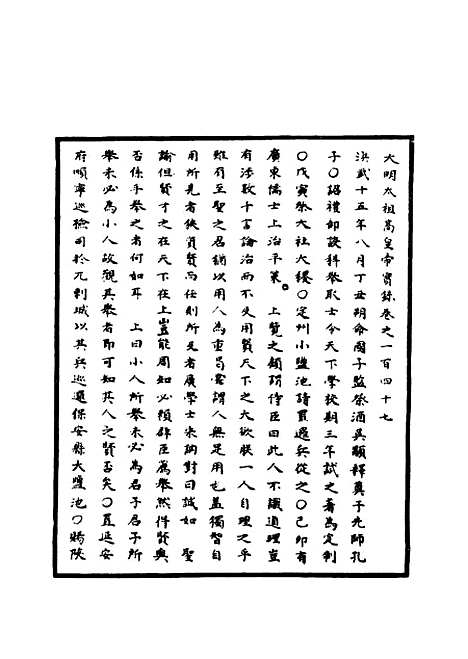 大明太祖高皇帝實錄卷之一百四十七
洪武十五年八月丁丑朔命國子監祭酒吳顒釋奠于先師孔
子○詔禮部設科舉取士令天下學校期三年試之著為定制
○戊寅祭大社大稷○定州小鹽池請置邏兵從之○己卯有
廣東儒士上治平策　上覽之顧謂侍臣曰此人不識道理豈
有涉數十言論治而不及用賢天下之大欲朕一人自理之乎
雖有至聖之君猶以用人為重苟露謂人無足用也蓋獨智自
用所見者狹資賢而任則所見者廣學士宋訥對曰誠如　聖
諭但賢才之在天下在上豈能周知必賴群臣薦舉然件賢與
否係乎舉之者何如耳　上曰小人所舉未必為君子君子所
舉未必為小人故觀其舉者即可知其人之賢否矣○置延安
府順寧巡檢司於兀剌城以其兵巡邏保安縣大鹽池○賜陝